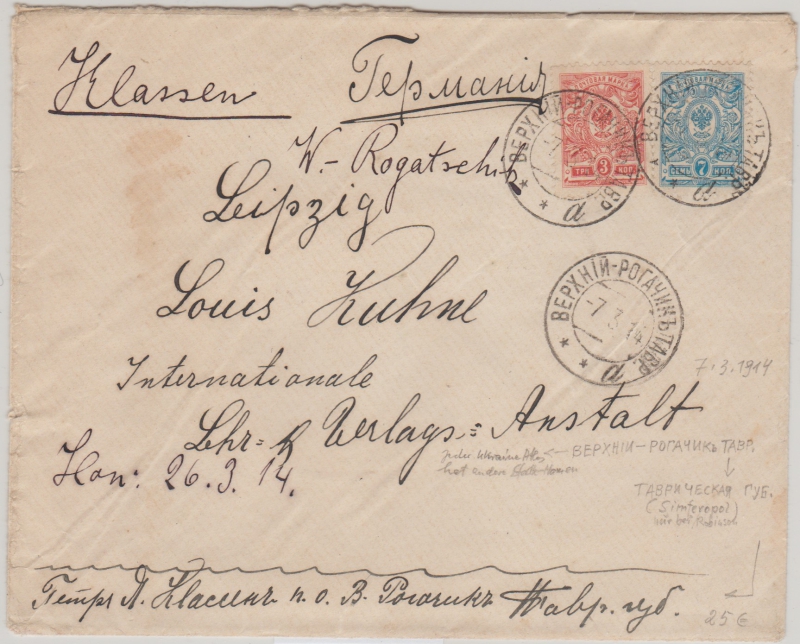 Klassen Германія
ПОЧТОВАЯ МАРКА
ТРИ 3 КОП.
СЕМЬ 7 КОП.
W.- Rogatschik
Leipzig
ВЕРХНІЙ-РОГАЧИКЪ ТАВР.
а
ВЕРХНІЙ-РОГАЧИКЪ ТАВР.
а
Louis Kuhne
ВЕРХНІЙ-РОГАЧИКЪ ТАВР.
-7.3.14
а
7.3.1914
Internationale
Lehr= & Verlags= Anstalt
Hon: 26.3.14.
← ВЕРХНІЙ-РОГАЧИКЪ ТАВР.
↓
ТАВРИЧЕСКАЯ ГУБ.
(Simferopol)
Петръ Я. Классенъ п.о. В. Рогачикъ Тавр. губ.
25 €